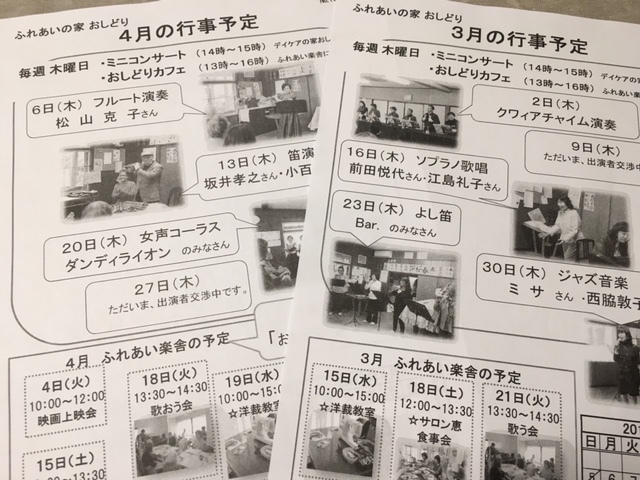 ふれあいの家 おしどり
4月の行事予定
毎週 木曜日 ・ミニコンサート (14時～15時) デイケアの家
・おしどりカフェ (13時～16時) ふれあい楽舎に
6日(木) フルート演奏
松山克子さん
13日(木) 笛演
坂井孝之さん・小百
20日(木) 女声コーラス
ダンディライオン のみなさん
27日(木)
ただいま、出演者交渉中です。
「お
4月 ふれあい楽舎の予定
4日(火)
10:00～12:00
映画上映会
18日(火)
13:30～14:30
歌おう会
19日(水)
10:00～
☆洋裁教室
15日(土)
ふれあいの家 おしどり
3月の行事予定
毎週 木曜日 ・ミニコンサート (14時～15時) デイケアの家
・おしどりカフェ (13時～16時) ふれあい楽
2日(木)
クワィアチャイム演奏
9日(木)
ただいま、出演者交渉中
16日(木) ソプラノ歌唱
前田悦代さん・江島礼子さん
23日(木) よし笛
Bar. のみなさん
30日(木) ジャズ音楽
ミサ さん・西脇敦子
3月 ふれあい楽舎の予定
15日(水)
10:00～12:00
☆洋裁教室
18日(土)
12:00～
☆サロン恵
食事会
21日(火)
13:30～14:30
歌う会
201
日 月 火
5 6